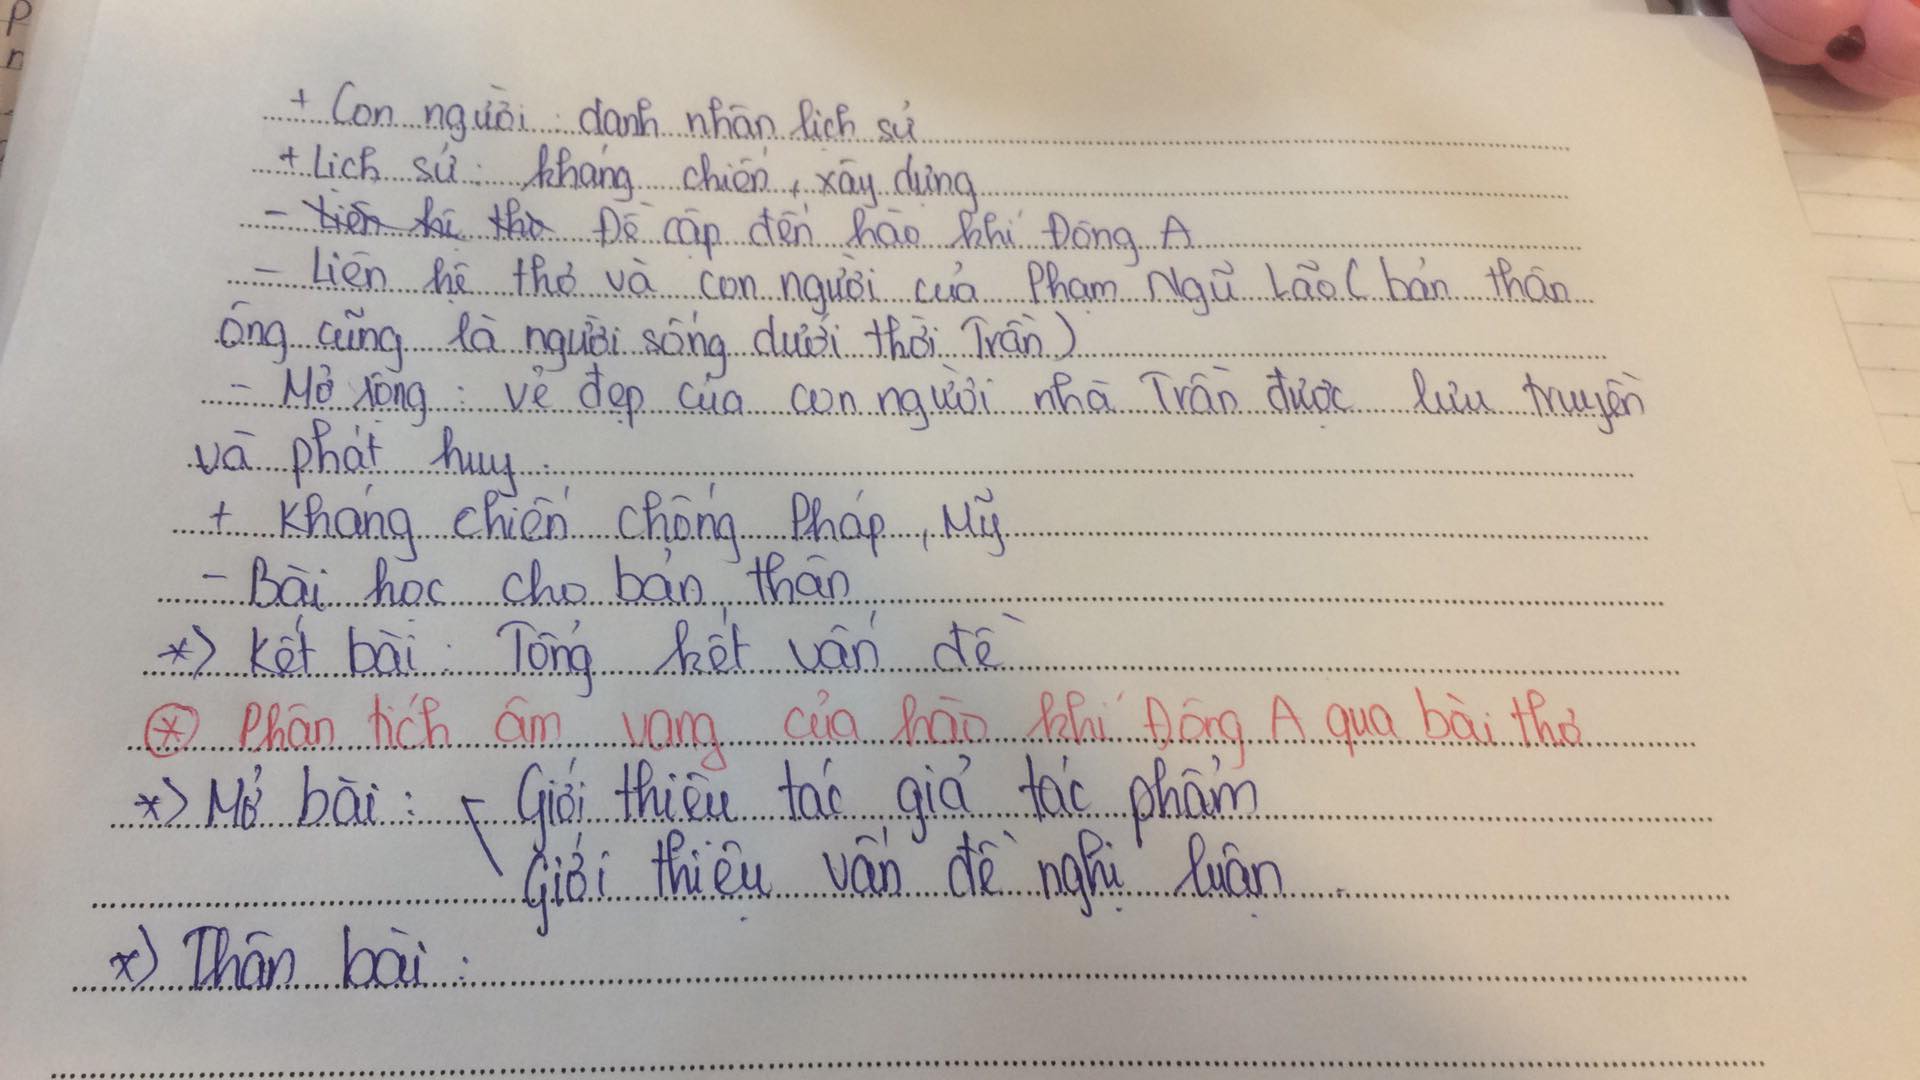 + Con người : danh nhân lịch sử
+ Lịch sử : kháng chiến, xây dựng
- Liên hệ thơ Đề cập đến hào khí Đông A
- Liên hệ thơ và con người của Phạm Ngũ Lão ( bản thân
ông cũng là người sống dưới thời Trần )
- Mở rộng : vẻ đẹp của con người nhà Trần được lưu truyền
và phát huy :
+ Kháng chiến chống Pháp, Mỹ
- Bài học cho bản thân
*) Kết bài : Tổng kết vấn đề
* Phân tích âm vang của hào khí Đông A qua bài thơ
*) Mở bài : Giới thiệu tác giả tác phẩm
Giới thiệu vấn đề nghị luận
*) Thân bài :